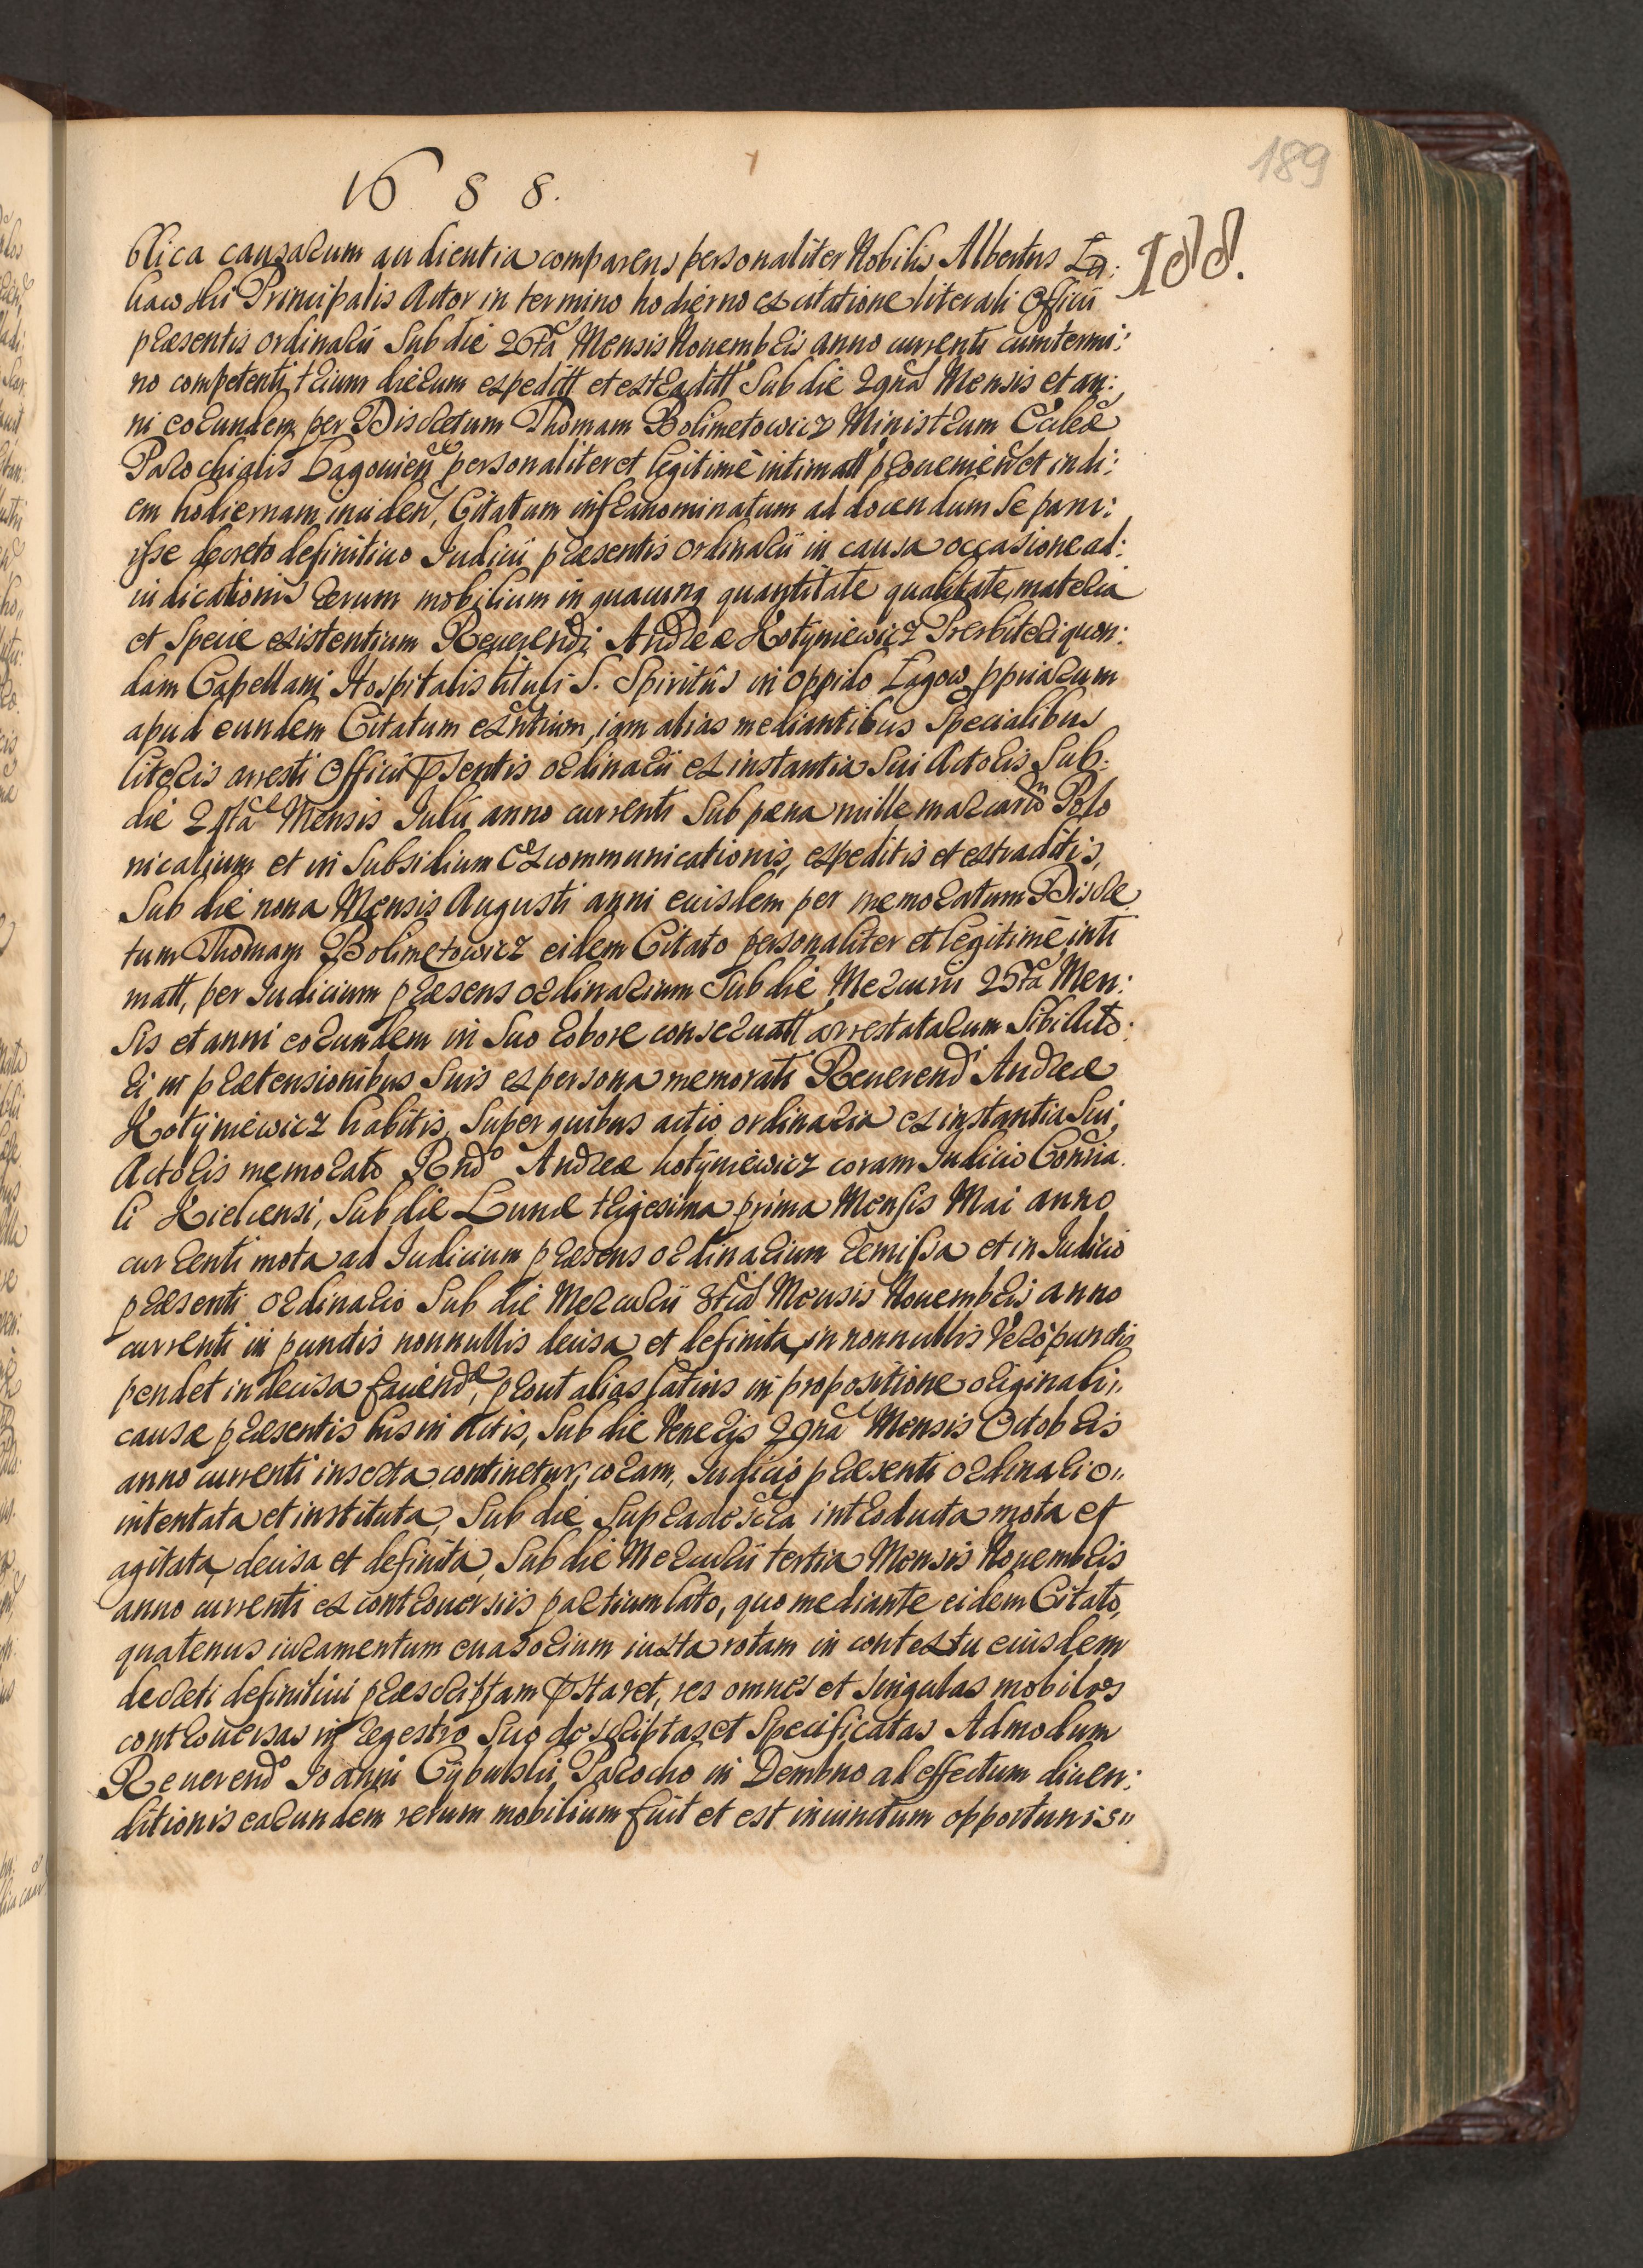 189
1688.
188.
blica causarum audientia comparens personaliter Nobilis Albertus Ła:
kawski Principalis Actor in termino hodierno ex citatione literali Officii
præsentis ordinarii Sub die 26ta Mensis Nouembris anno currenti cum termi:
no competenti trium dierum expeditt et extraditt Sub die 29na Mensis et an:
ni eorundem per Discretum Thomam Bolimetowicz Ministrum Eccleæ
Parochialis Łagouien personaliter et legitimè intimatt prouenien et in di:
em hodiernam inciden, Citatum infranominatum ad docendum Se paru:
isse decreto definitiuo Iudicii præsentis ordinarii in causa occasione ad:
iudicationis rerum mobilium in quacunq quantitate qualitate, materia
et Specie existentium Reuerendi Andreæ Kotyniewicz Præsbiteri quon:
dam Capellani Hospitalis tituli S. Spiritûs in oppido Łagow ppriarum
apud eundem Citatum exntium, iam alias mediantibus Specialibus
literis arresti Officii psentis ordinarii ex instantia Sui Actoris Sub:
die 24ta Mensis Iulii anno currenti Sub pæna mille marcarum Polo
nicalium et in Subsidium Excommunicationis, expeditis et extraditis,
Sub die nona Mensis Augusti anni eiusdem per memoratum Discre
tum Thomam Bolimetowicz eidem Citato personaliter et legitimè inti
matt, per Iudicium præsens ordinarium Sub die Mercurii 25ta Men:
sis et anni eorundem in Suo robore conseruatt arrestatarum Sibi Acto:
ri in prætensionibus Suis ex persona memorati Reuerendi Andreæ
Kotyniewicz habitis, Super quibus actio ordinaria ex instantia Sui
Actoris memorato Rndo Andreæ kotyniewicz coram Iudicio Consia
li Kielcensi, Sub die Lunæ trigesima prima Mensis Mai anno
currenti mota ad Iudicium præsens ordinarium remissa et in Iudicio
præsenti ordinario Sub die Mercurii 8tia Mensis Nouembris anno
currenti in punctis nonnullis decisa et definita, in nonnullis verò punctis
pendet indecisa faciendæ, prout alias latius in propositione originali"
causæ præsentis his in Actis, Sub die Veneris 29na Mensis Octobris
anno currenti inserta continetur, coram Iudicio præsenti ordinario"
intentata et instituta, Sub die Supradescra introducta mota et
agitata, decisa et definita, Sub die Mercurii tertia Mensis Nouembris
anno currenti ex controuersiis partium lato, quo mediante eidem Citato,
quatenus iuramentum euasorium iuxta rotam in contextu eiusdem
decreti definitiui præscriptam pstaret, res omnes et singulas mobiles
controuersas in regestro Suo descriptas et Specificatas Admodum
Reuerendo Ioanni Cybulski Parocho in Dembno ad effectum diuen:
ditionis earundem rerum mobilium fuit et est iniunctum opportunis"